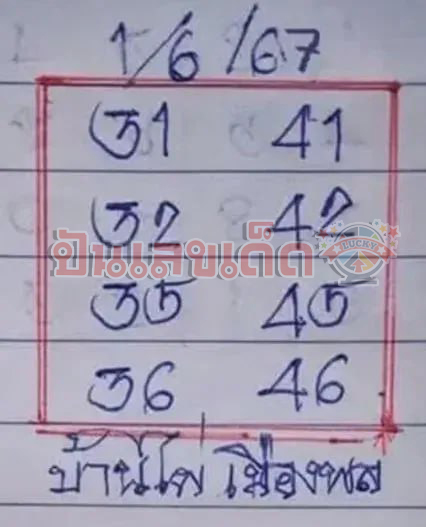 1/6/67
31 41
32 42
ปันเลขเด็ด LUCKY
35 45
36 46
บ้านไผ่ เมืองพล